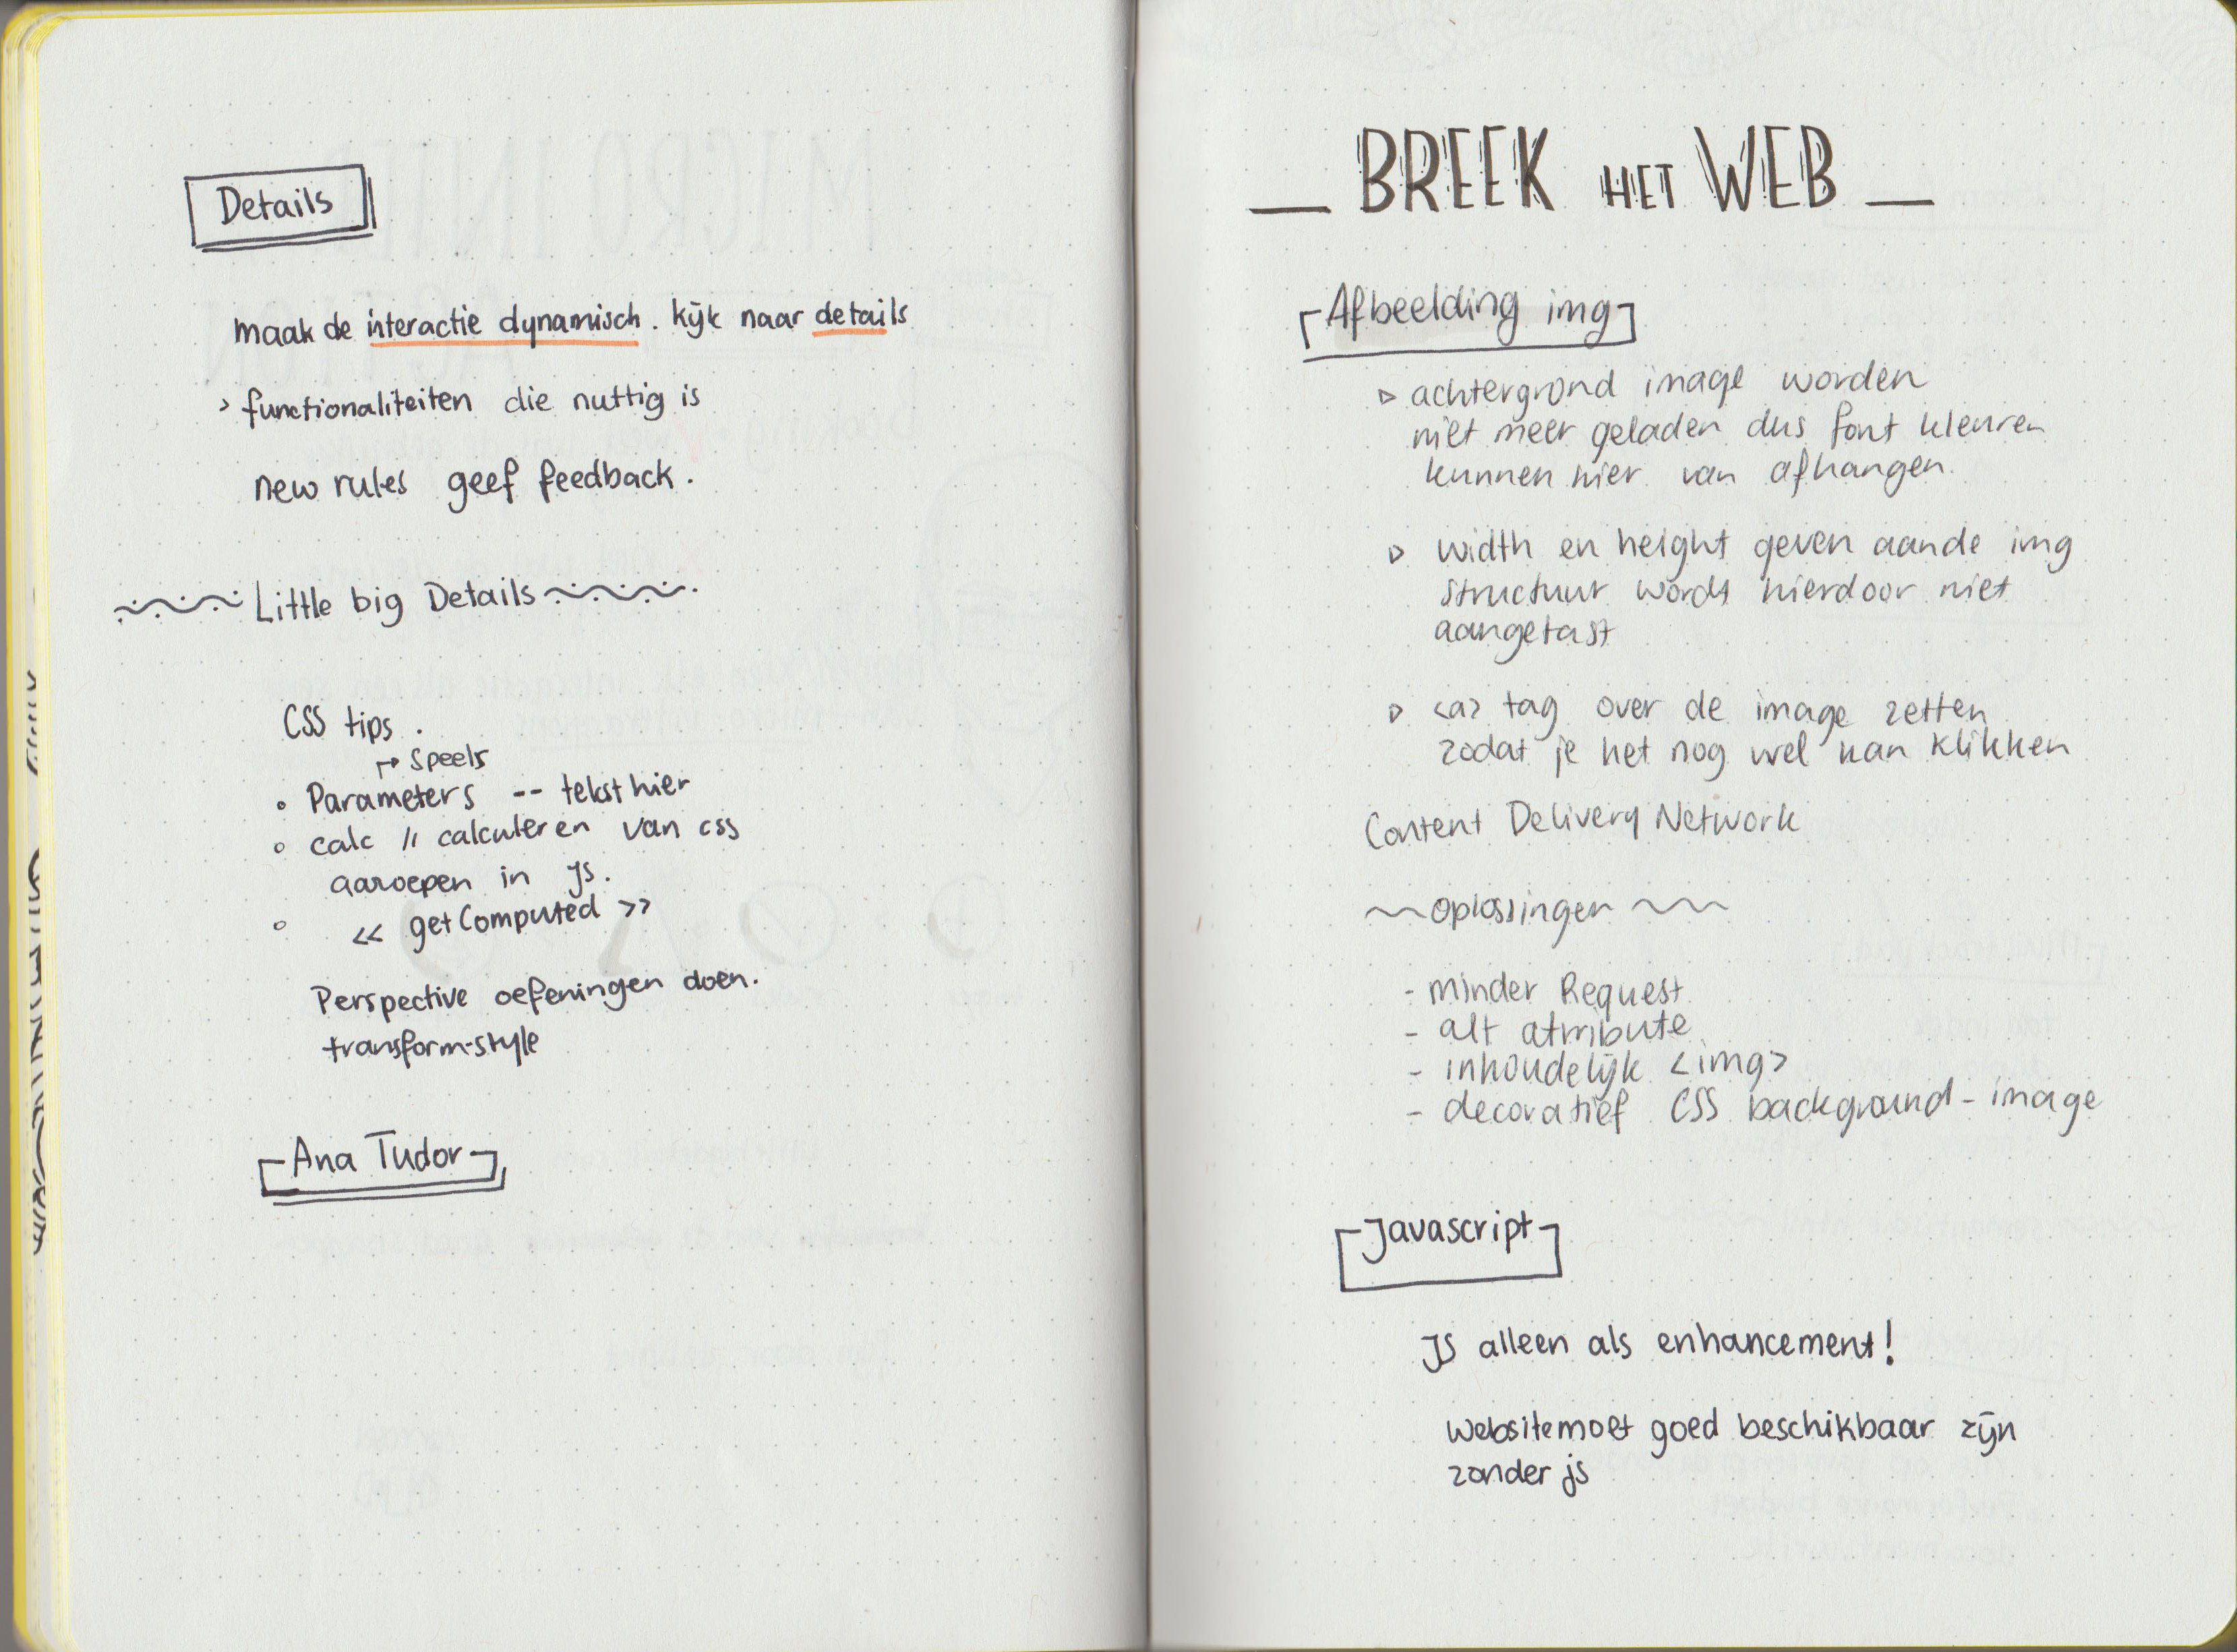 Details
maak de interactie dynamisch. kijk naar details
> functionaliteiten die nuttig is
new rules geef feedback.
Little big Details
CSS tips.
↱ speels
• Parameters -- tekst hier
∘ calc // calculeren van css
aaroepen in JS.
∘ << getComputed >>
Perspective oefeningen doen.
transform-style
Ana Tudor
BREEK HET WEB
Afbeelding img
▹ achtergrond image worden
niet meer geladen dus font kleuren
kunnen hier van afhangen.
▹ width en height geven aan de img
structuur wordt hierdoor niet
aangetast
▹ <a> tag over de image zetten
zodat je het nog wel kan klikken
Content Delivery Network
~~ oplossingen ~~
- minder Request
- alt attribute
- inhoudelijk <img>
- decoratief CSS background-image
Javascript
JS alleen als enhancement!
website moet goed beschikbaar zijn
zonder js